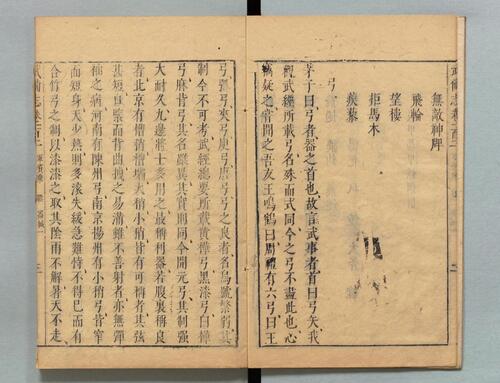 無敵神牌
飛輪
望樓
拒馬木
蒺藜
弓
茅子曰弓者器之首也故言武事者首曰弓矢我
觀武經所載弓名殊而式同今之弓不盡此也心
竊疑之嘗聞之吾友王鳴鶴曰周禮有六弓曰王
弓弧弓夾弓庾弓唐弓弓之良者名烏號繁弱其
制今不可考武經總要所載黃樺弓黑漆弓白樺
弓麻背弓其名雖異其實則同今開元弓其制強
大耐久九邊將士多用之最稱利器若腹裏稱良
者北京有槽稍槽壩大稍小稍皆有可稱者其弦
甚短且緊而背曲拽之易滿雖不善射者亦無彈
袖之病河南有陳州弓南京揚州有小稍弓背窄
而短身天少熱則多滾失緩急難恃不得已而有
合竹弓之制以漆漆之取其陰雨不解暑天不走
武備志卷一百二